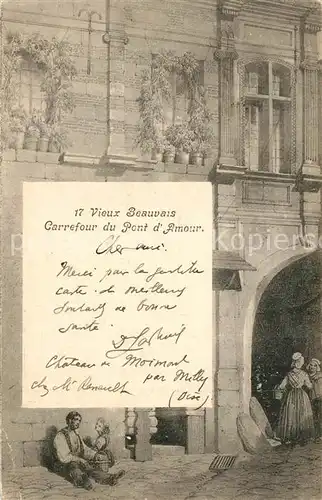 17 Vieux Beauvais
Carrefour du Pont d'Amour.
Cher ami.
Merci pour la gentille
carte. et meilleurs
souhaits de bonne
santé.
Château de Mormont
par Milly
chez Mr Renault
(Oise)